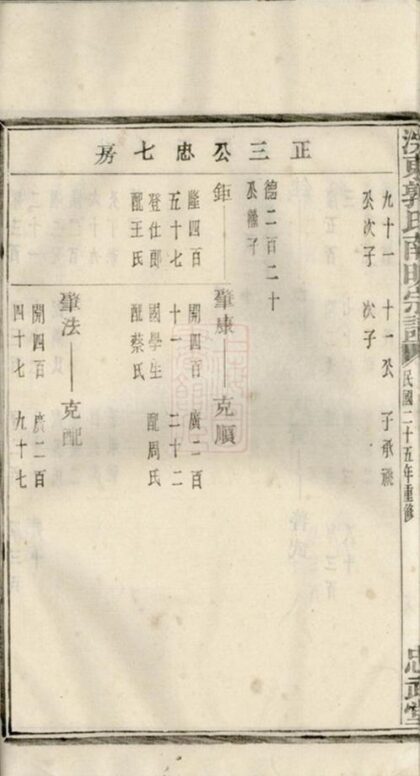 郭氏南明宗譜 民國二十五年重修 忠武堂
正三公忠七房
九十一 十一公 子承祧
公次子 次子
德二百二十
公繼子
鉅 肇康 克順
隆四百 開四百 廣二百
五十七 十一 二十二
登仕郎 國學生 配周氏
配王氏 配蔡氏
肇法 克配
開四百 廣二百
四十七 九十七